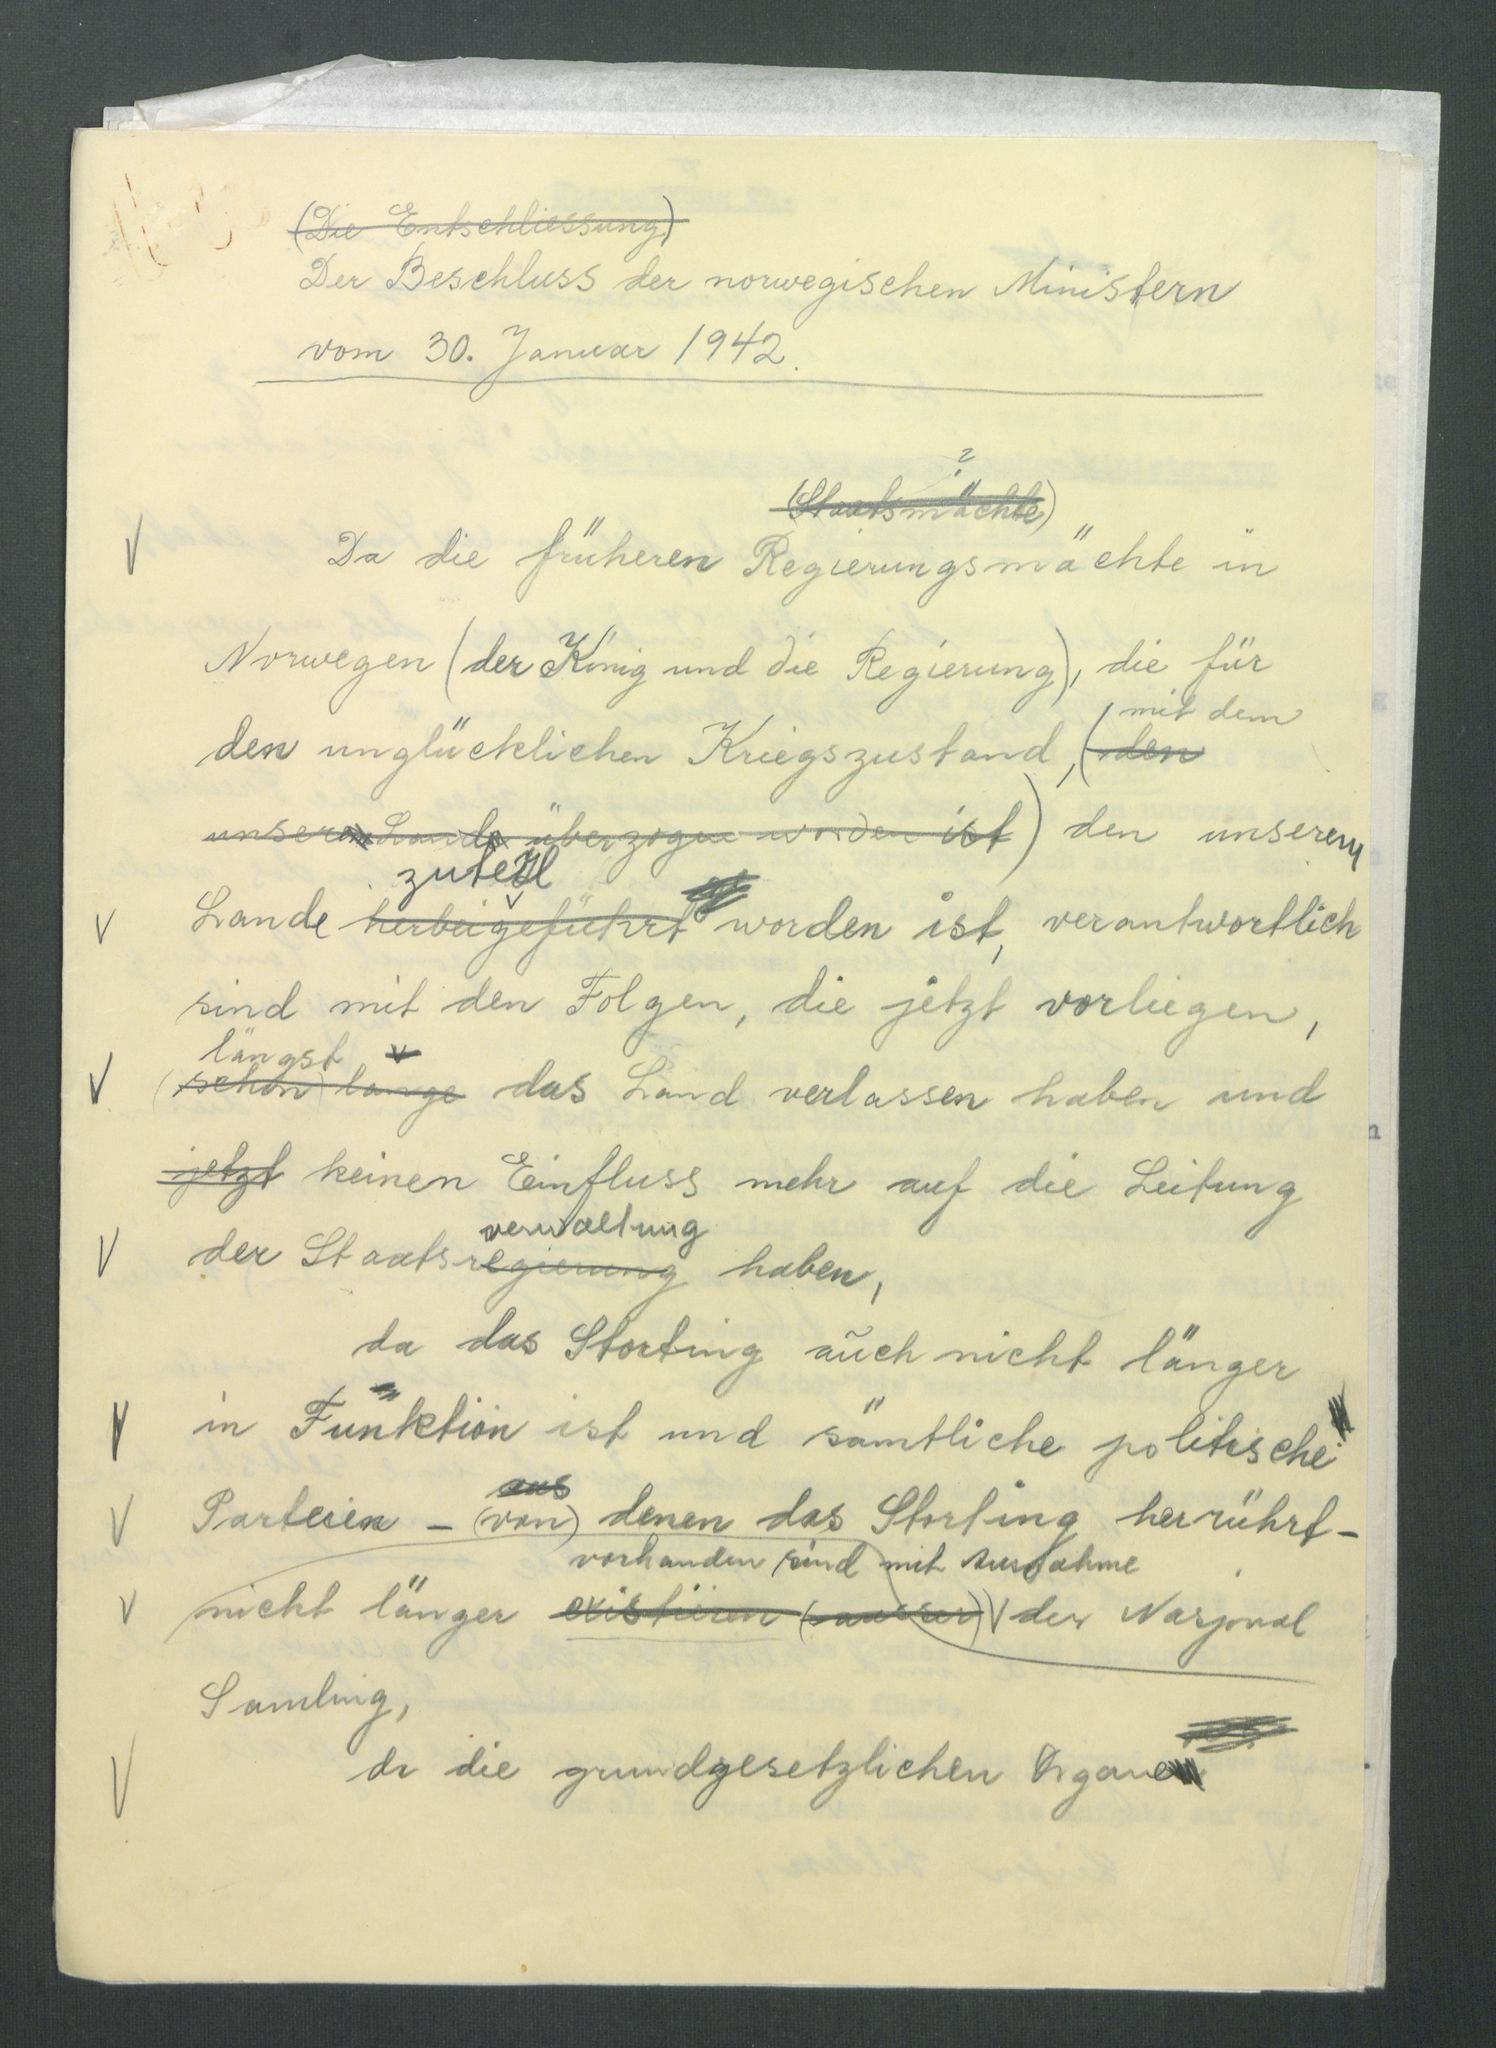 (Die Entschliessung)
Der Beschluss der norwegischen Ministern
vom 30. Januar 1942.
?
(Staatsmächte)
Da die früheren Regierungsmächte in
Norwegen (der König und die Regierung), die für
mit dem
den unglücklichen Kriegszustand, (den
unserem Lande überzogen worden ist) den unserem
zuteil
Lande herbeigeführt worden ist, verantwortlich
sind mit den Folgen, die jetzt vorliegen,
längst
(schon) lange das Land verlassen haben und
jetzt keinen Einfluss mehr auf die Leitung
verwaltung
der Staatsregierung haben,
da das Storting auch nicht länger
in Funktion ist und sämtliche politische
aus
Parteien - (von) denen das Storting herrührt -
vorhanden sind mit Ausnahme
nicht länger existieren (ausser) der Nasjonal
Samling,
da die grundgesetzlichen Organe